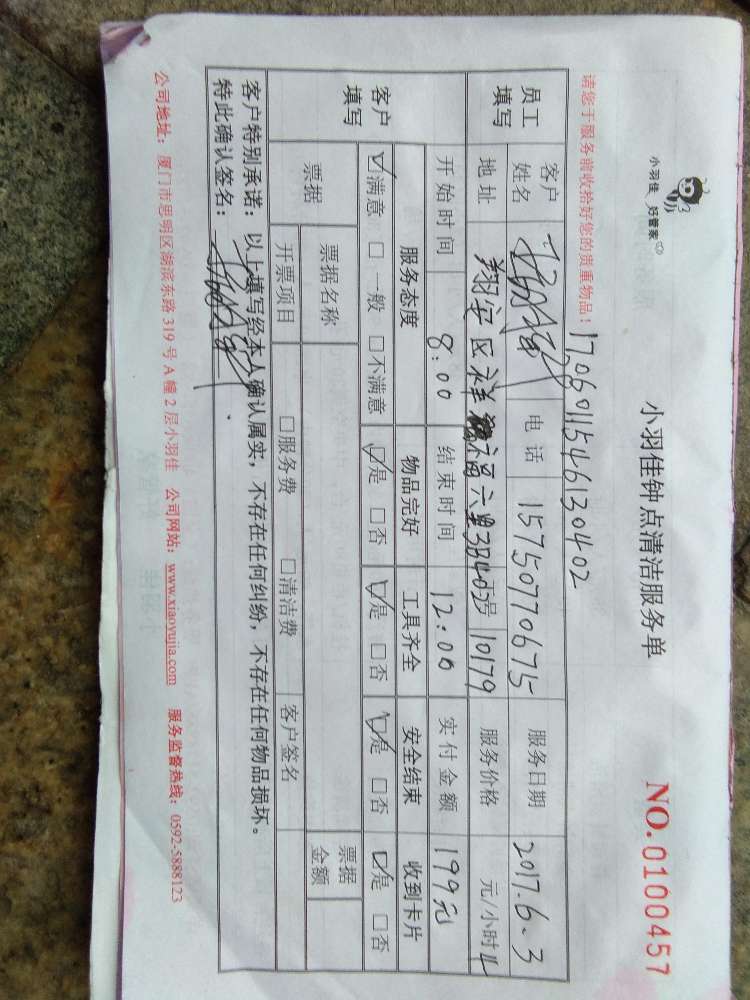 小羽佳 好管家
小羽佳钟点清洁服务单
NO.0100457
请您于服务前收拾好您的贵重物品!
1706011546130402
员工填写
客户姓名 电话 15750770675 服务日期 2017.6.3
地址 翔安区祥福六里 号 10179 服务价格 元/小时
开始时间 8:00 结束时间 12:00 实付金额 199元
客户填写
服务态度 物品完好 工具齐全 安全结束 收到卡片
☑满意 □一般 □不满意 ☑是 □否 ☑是 □否 ☑是 □否 ☑是 □否
票据 票据名称 票据金额
开票项目 □服务费 □清洁费 客户签名
客户特别承诺:以上填写经本人确认属实,不存在任何纠纷,不存在任何物品损坏。
特此确认签名:
公司地址:厦门市思明区湖滨东路319号A幢2层小羽佳 公司网站:www.xiaoyujia.com 服务监督热线:0592-5888123